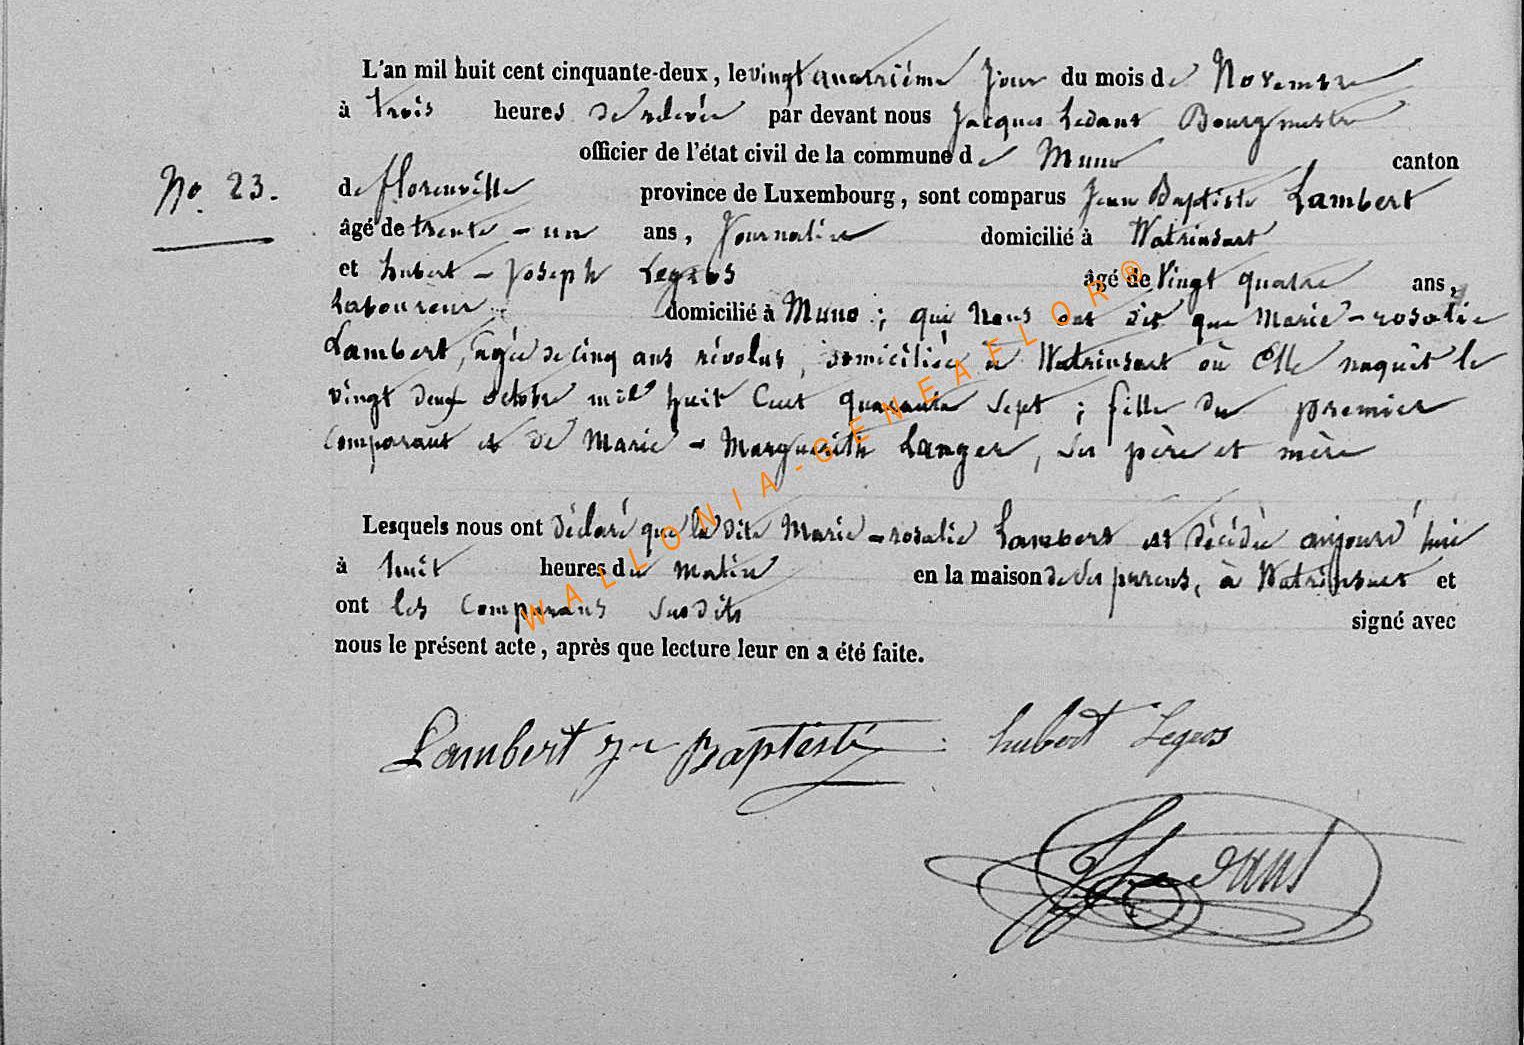 L'an mil huit cent cinquante-deux, le vingt quatrième jour du mois de Novembre
à trois heures de relevée par devant nous Jacques Ledant Bourgmestre
officier de l'état civil de la commune de Muno canton
No. 23.
de florenville province de Luxembourg, sont comparus Jean Baptiste Lambert
âgé de trente - un ans, Journalier domicilié à Watrinsart
et hubert - Joseph Legros âgé de Vingt quatre ans,
Laboureur domicilié à Muno ; qui Nous ont dit que Marie - rosalie
Lambert, âgée de cinq ans révolus, domiciliée à Watrinsart où Elle naquit le
vingt deux octobre mil huit Cent quarante sept ; fille du premier
comparant et de Marie - Marguerith Langer, ses père et mère
Lesquels nous ont déclaré que la dite Marie - rosalie Lambert est décédée aujourd'huie
à huit heures du matin en la maison de ses parens, à Watrinsart et
ont les Comparans susdits signé avec
nous le présent acte, après que lecture leur en a été faite.
Lambert Jn Baptiste hubert Legros
JLedant
WALLONIA-GENEAFLOR®